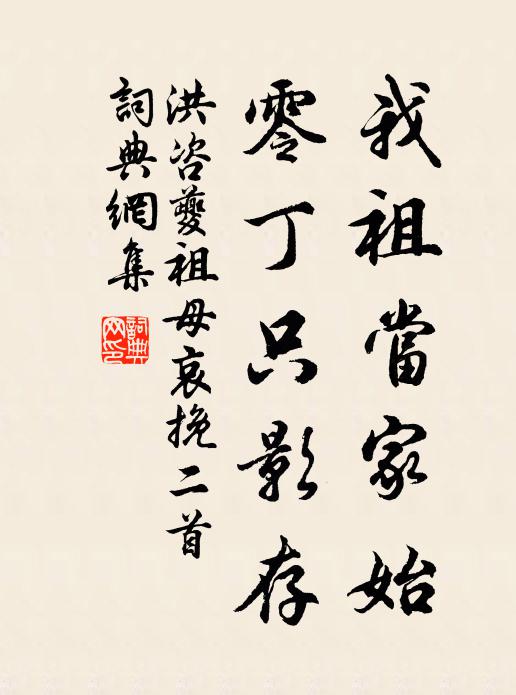 我祖當家始
零丁只影存
洪咨夔祖母哀挽二首
詞典網集
詞典網印